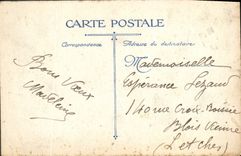 CARTE POSTALE
Correspondance
Adresse du destinataire
Bons Vœux
Madeleine
Mademoiselle
Espérance Lezaud
140 rue Croix Boisée
Blois Vienne
(L et Cher)